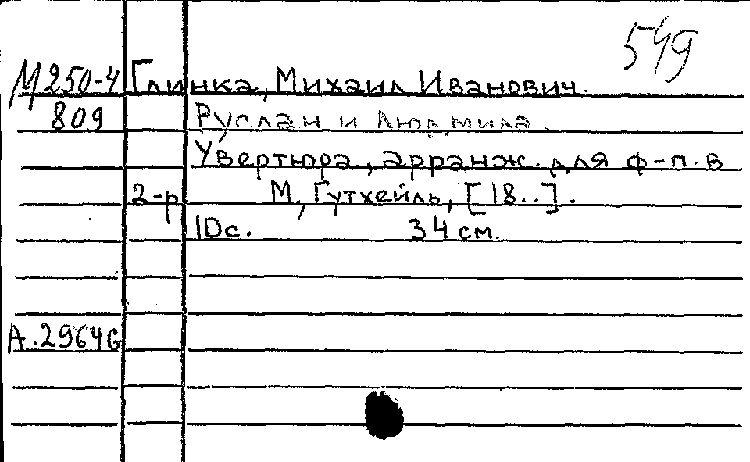 549
М250-4 Глинка, Михаил Иванович.
809 Руслан и Людмила.
Увертюра, арранж. для ф-п. в
2-р М, Гутхейль, [18..].
10с. 34 см.
А.29646